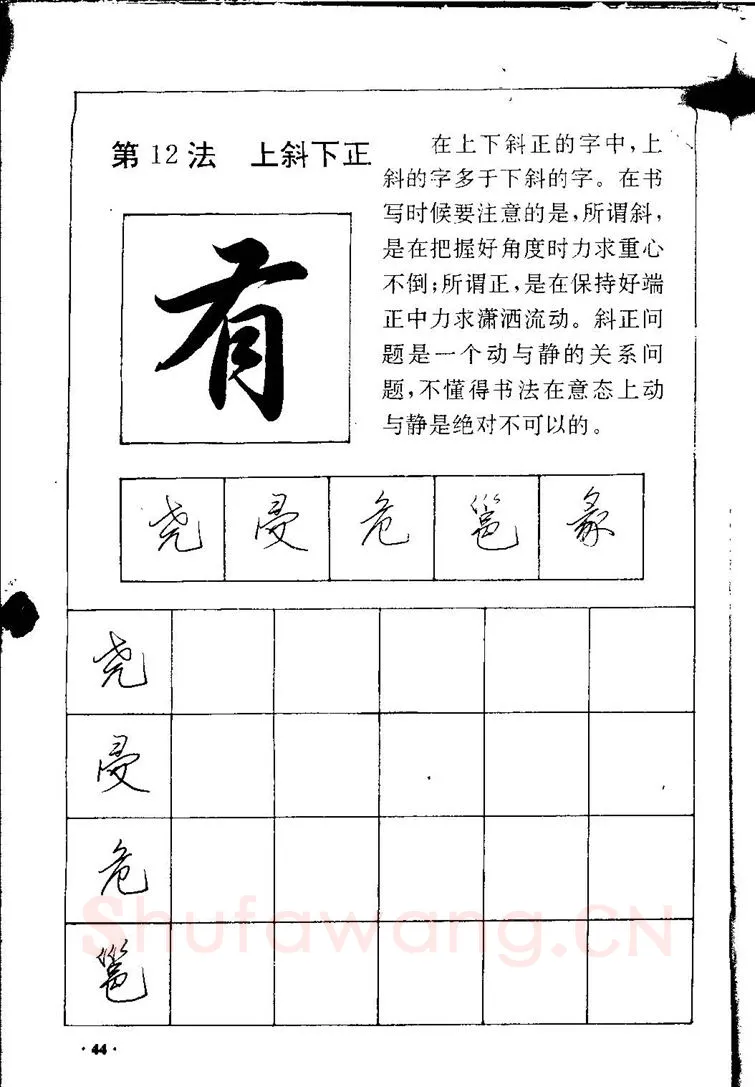 第12法 上斜下正
在上下斜正的字中，上
斜的字多于下斜的字。在书
写时候要注意的是，所谓斜，
是在把握好角度时力求重心
不倒；所谓正，是在保持好端
正中力求潇洒流动。斜正问
题是一个动与静的关系问
题，不懂得书法在意态上动
与静是绝对不可以的。
有
尧 曼 危 邕 彖
尧
曼
危
邕
Shufawang.CN
·44·